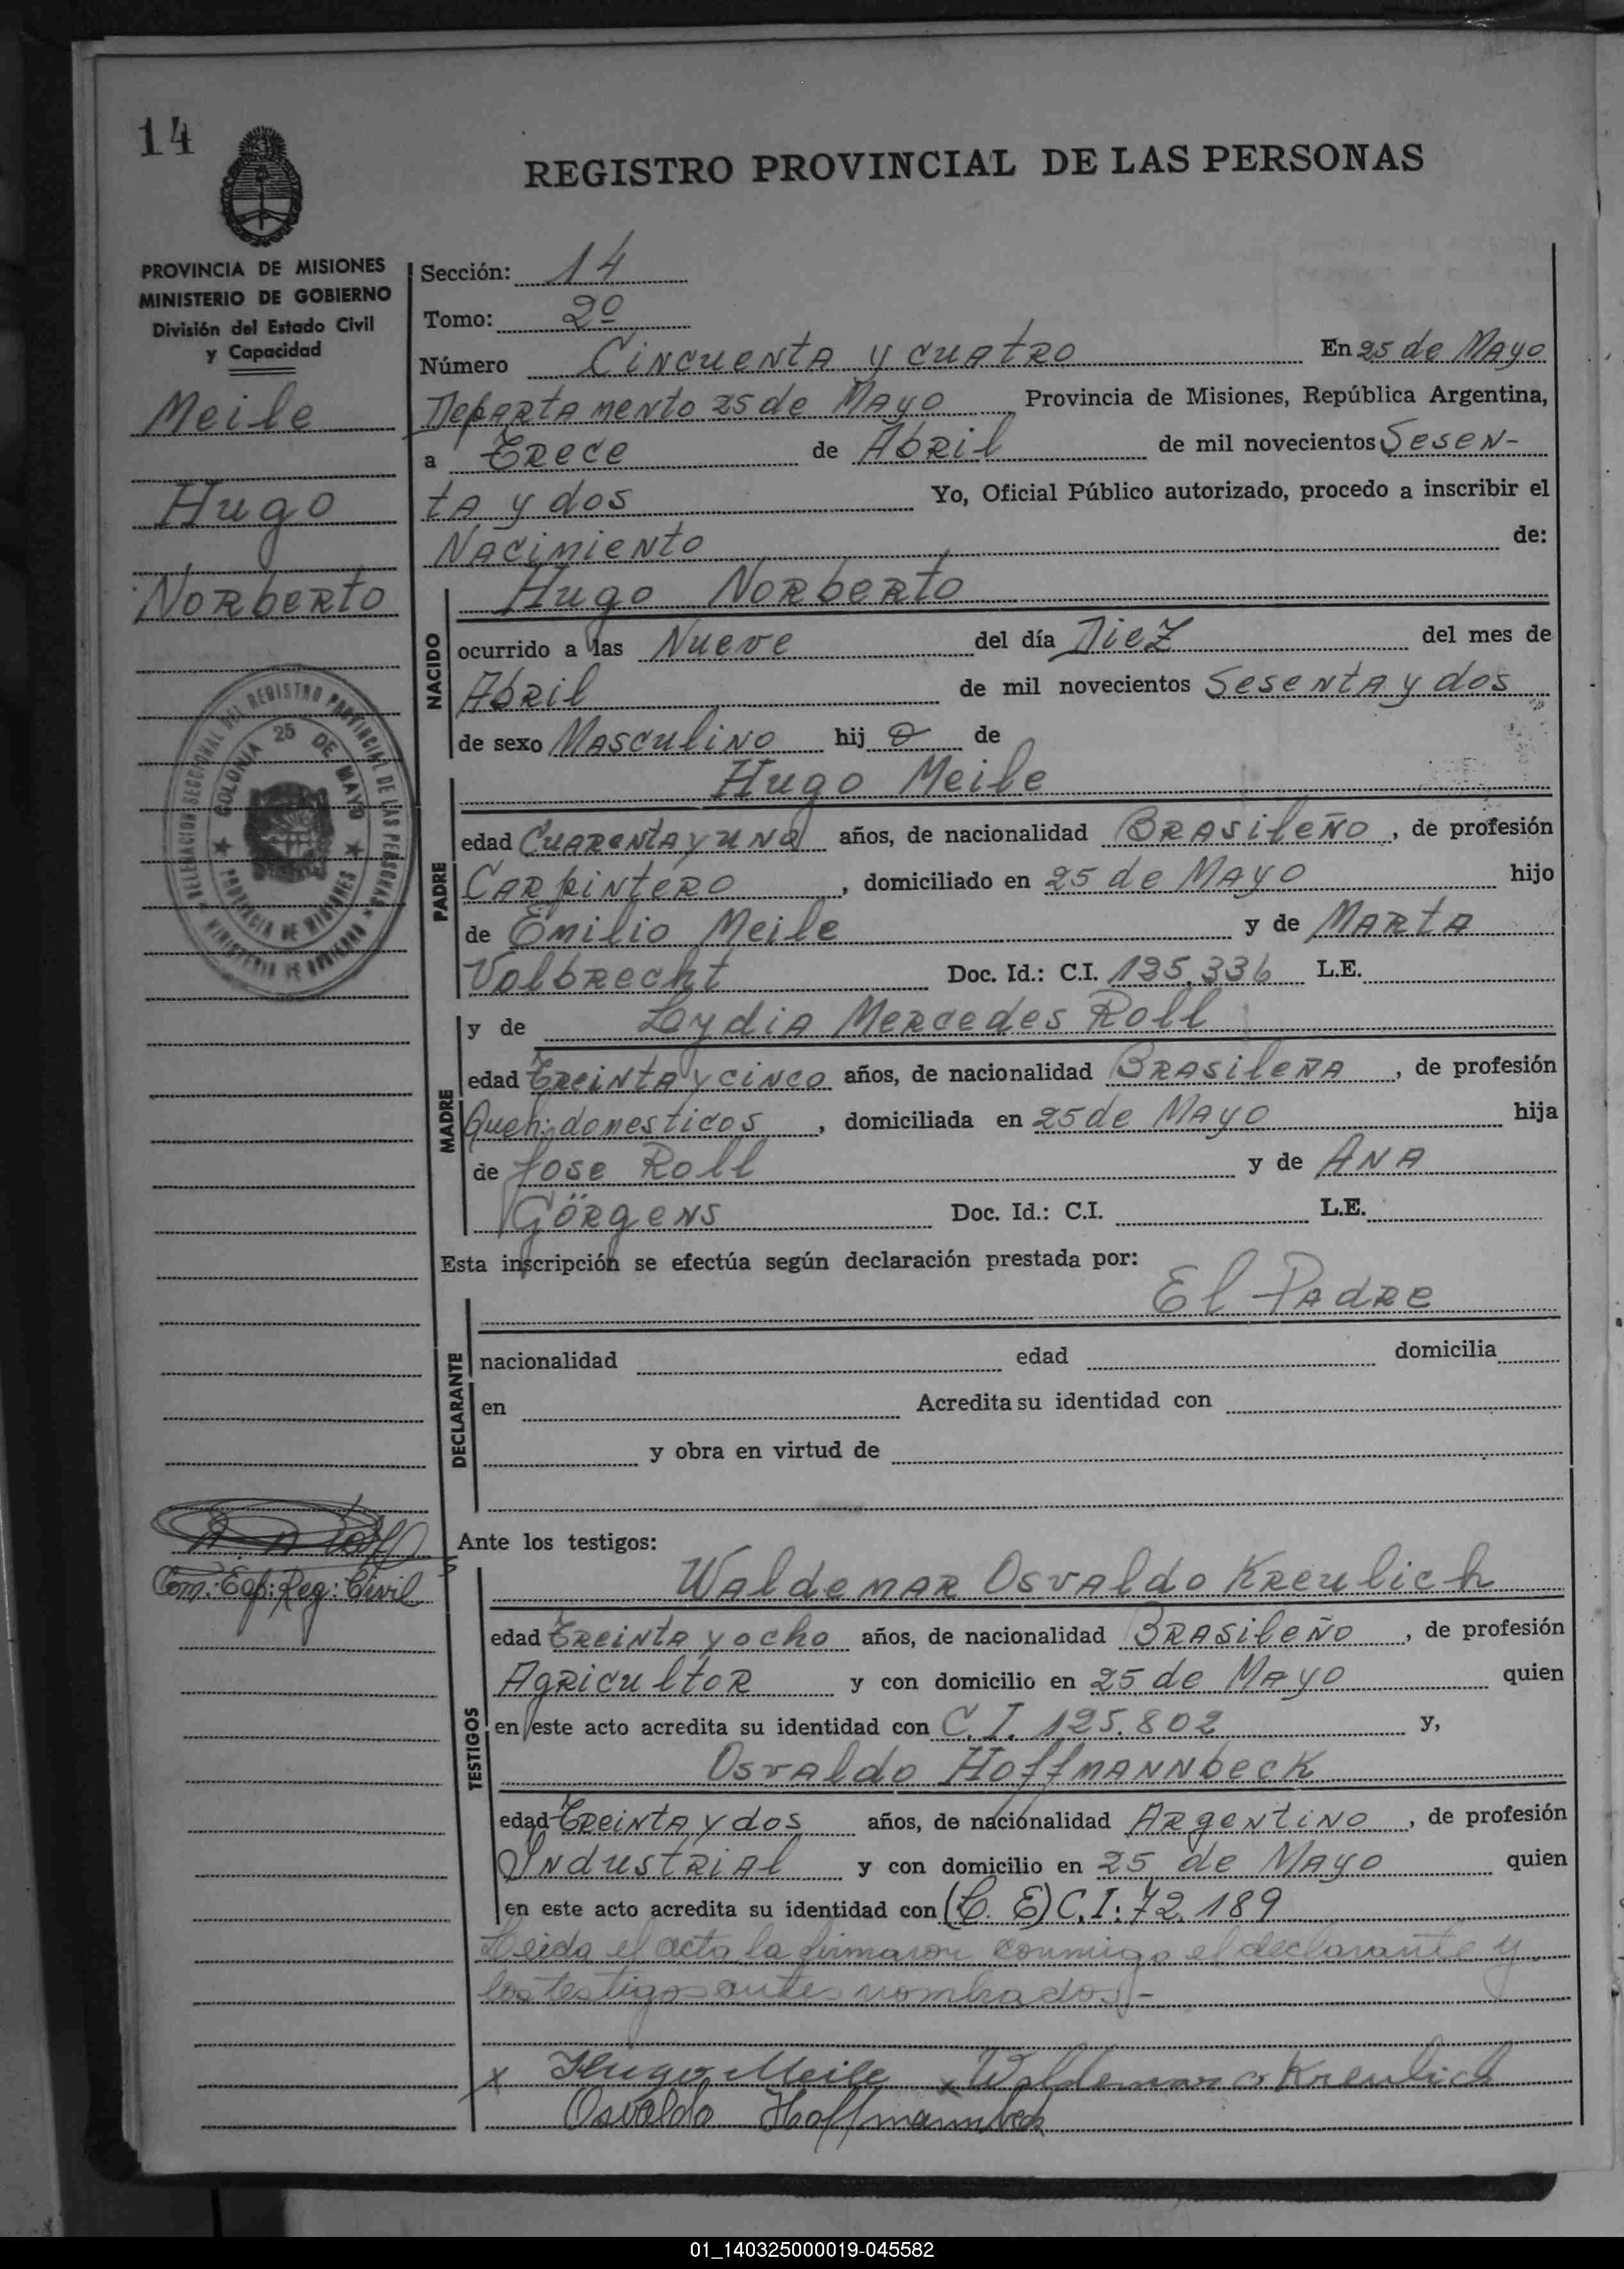 14
REGISTRO PROVINCIAL DE LAS PERSONAS
PROVINCIA DE MISIONES
MINISTERIO DE GOBIERNO
División del Estado Civil
y Capacidad
Meile
Hugo
Norberto
DELEGACION SECCIONAL DEL REGISTRO PROVINCIAL DE LAS PERSONAS
COLONIA 25 DE MAYO
PROVINCIA DE MISIONES
MINISTERIO DE GOBIERNO
Com: Reg: Civil
Sección: 14
Tomo: 2º
Número Cincuenta y cuatro En 25 de Mayo
Departamento 25 de Mayo Provincia de Misiones, República Argentina,
a Trece de Abril de mil novecientos Sesen-
ta y dos Yo, Oficial Público autorizado, procedo a inscribir el
Nacimiento de:
NACIDO
Hugo Norberto
ocurrido a las Nueve del día Diez del mes de
Abril de mil novecientos Sesenta y dos
de sexo Masculino hij o de
PADRE
Hugo Meile
edad Cuarenta y uno años, de nacionalidad Brasileño, de profesión
Carpintero, domiciliado en 25 de Mayo hijo
de Emilio Meile y de Marta
Volbrecht Doc. Id.: C.I. 135.336 L.E.
MADRE
y de Lydia Mercedes Roll
edad Treinta y cinco años, de nacionalidad Brasileña, de profesión
Queh: domesticos, domiciliada en 25 de Mayo hija
de Jose Roll y de Ana
Görgens Doc. Id.: C.I. L.E.
Esta inscripción se efectúa según declaración prestada por:
DECLARANTE
El Padre
nacionalidad edad domicilia
en Acredita su identidad con
y obra en virtud de
Ante los testigos:
TESTIGOS
Waldemar Osvaldo Kreulich
edad Treinta y ocho años, de nacionalidad Brasileño, de profesión
Agricultor y con domicilio en 25 de Mayo quien
en este acto acredita su identidad con C.I. 125.802 y,
Osvaldo Hoffmannbeck
edad Treinta y dos años, de nacionalidad Argentino, de profesión
Industrial y con domicilio en 25 de Mayo quien
en este acto acredita su identidad con (L. E) C.I: 72.189
Leida el acta la firmaron conmigo el declarante y
los testigos antes nombrados.-
x Hugo Meile x Waldemar O Kreulich
Osvaldo Hoffmannbeck
01_140325000019-045582